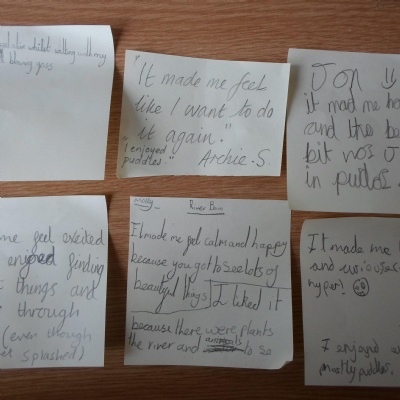 whilst walking with my
"It made me feel
like I want to do
it again."
"I enjoyed
puddles."
Archie.S.
Jon
it mad me ha
and the be
bit wos J
in pudlos
me feel excited
enjoyed finding
things and
through
(even though
splashed)
mostly
River Bain
It made me feel calm and happy
because you got to see lots of
beautiful things I liked it
because there were plants
the river and animals to se
It made me
and curious
hyper!
I enjoyed
mostly puddles.